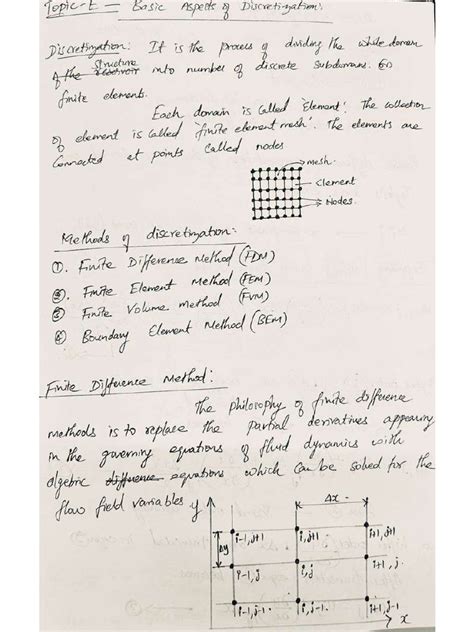 Topic-E — Basic Aspects of Discretization:
Discretization: It is the process of dividing the whole domain
of the structure into number of discrete subdomains. (or)
finite elements.
Each domain is called 'Element'. The collection
of element is called 'finite element mesh'. The elements are
Connected at points called nodes
mesh.
Element
Nodes.
Methods of discretization:
①. Finite Difference Method (FDM)
②. Finite Element Method (FEM)
③. Finite Volume method (FVM)
④ Boundary Element Method (BEM)
Finite Difference Method:
The philosophy of finite difference
methods is to replace the partial derivatives appearing
in the governing equations of fluid dynamics with
algebric difference equations which can be solved for the
flow field variables
y
Δx
i-1, j+1 i, j+1 i+1, j+1
Δy
i-1, j i, j i+1, j
i-1, j-1 i, j-1 i+1, j-1
x